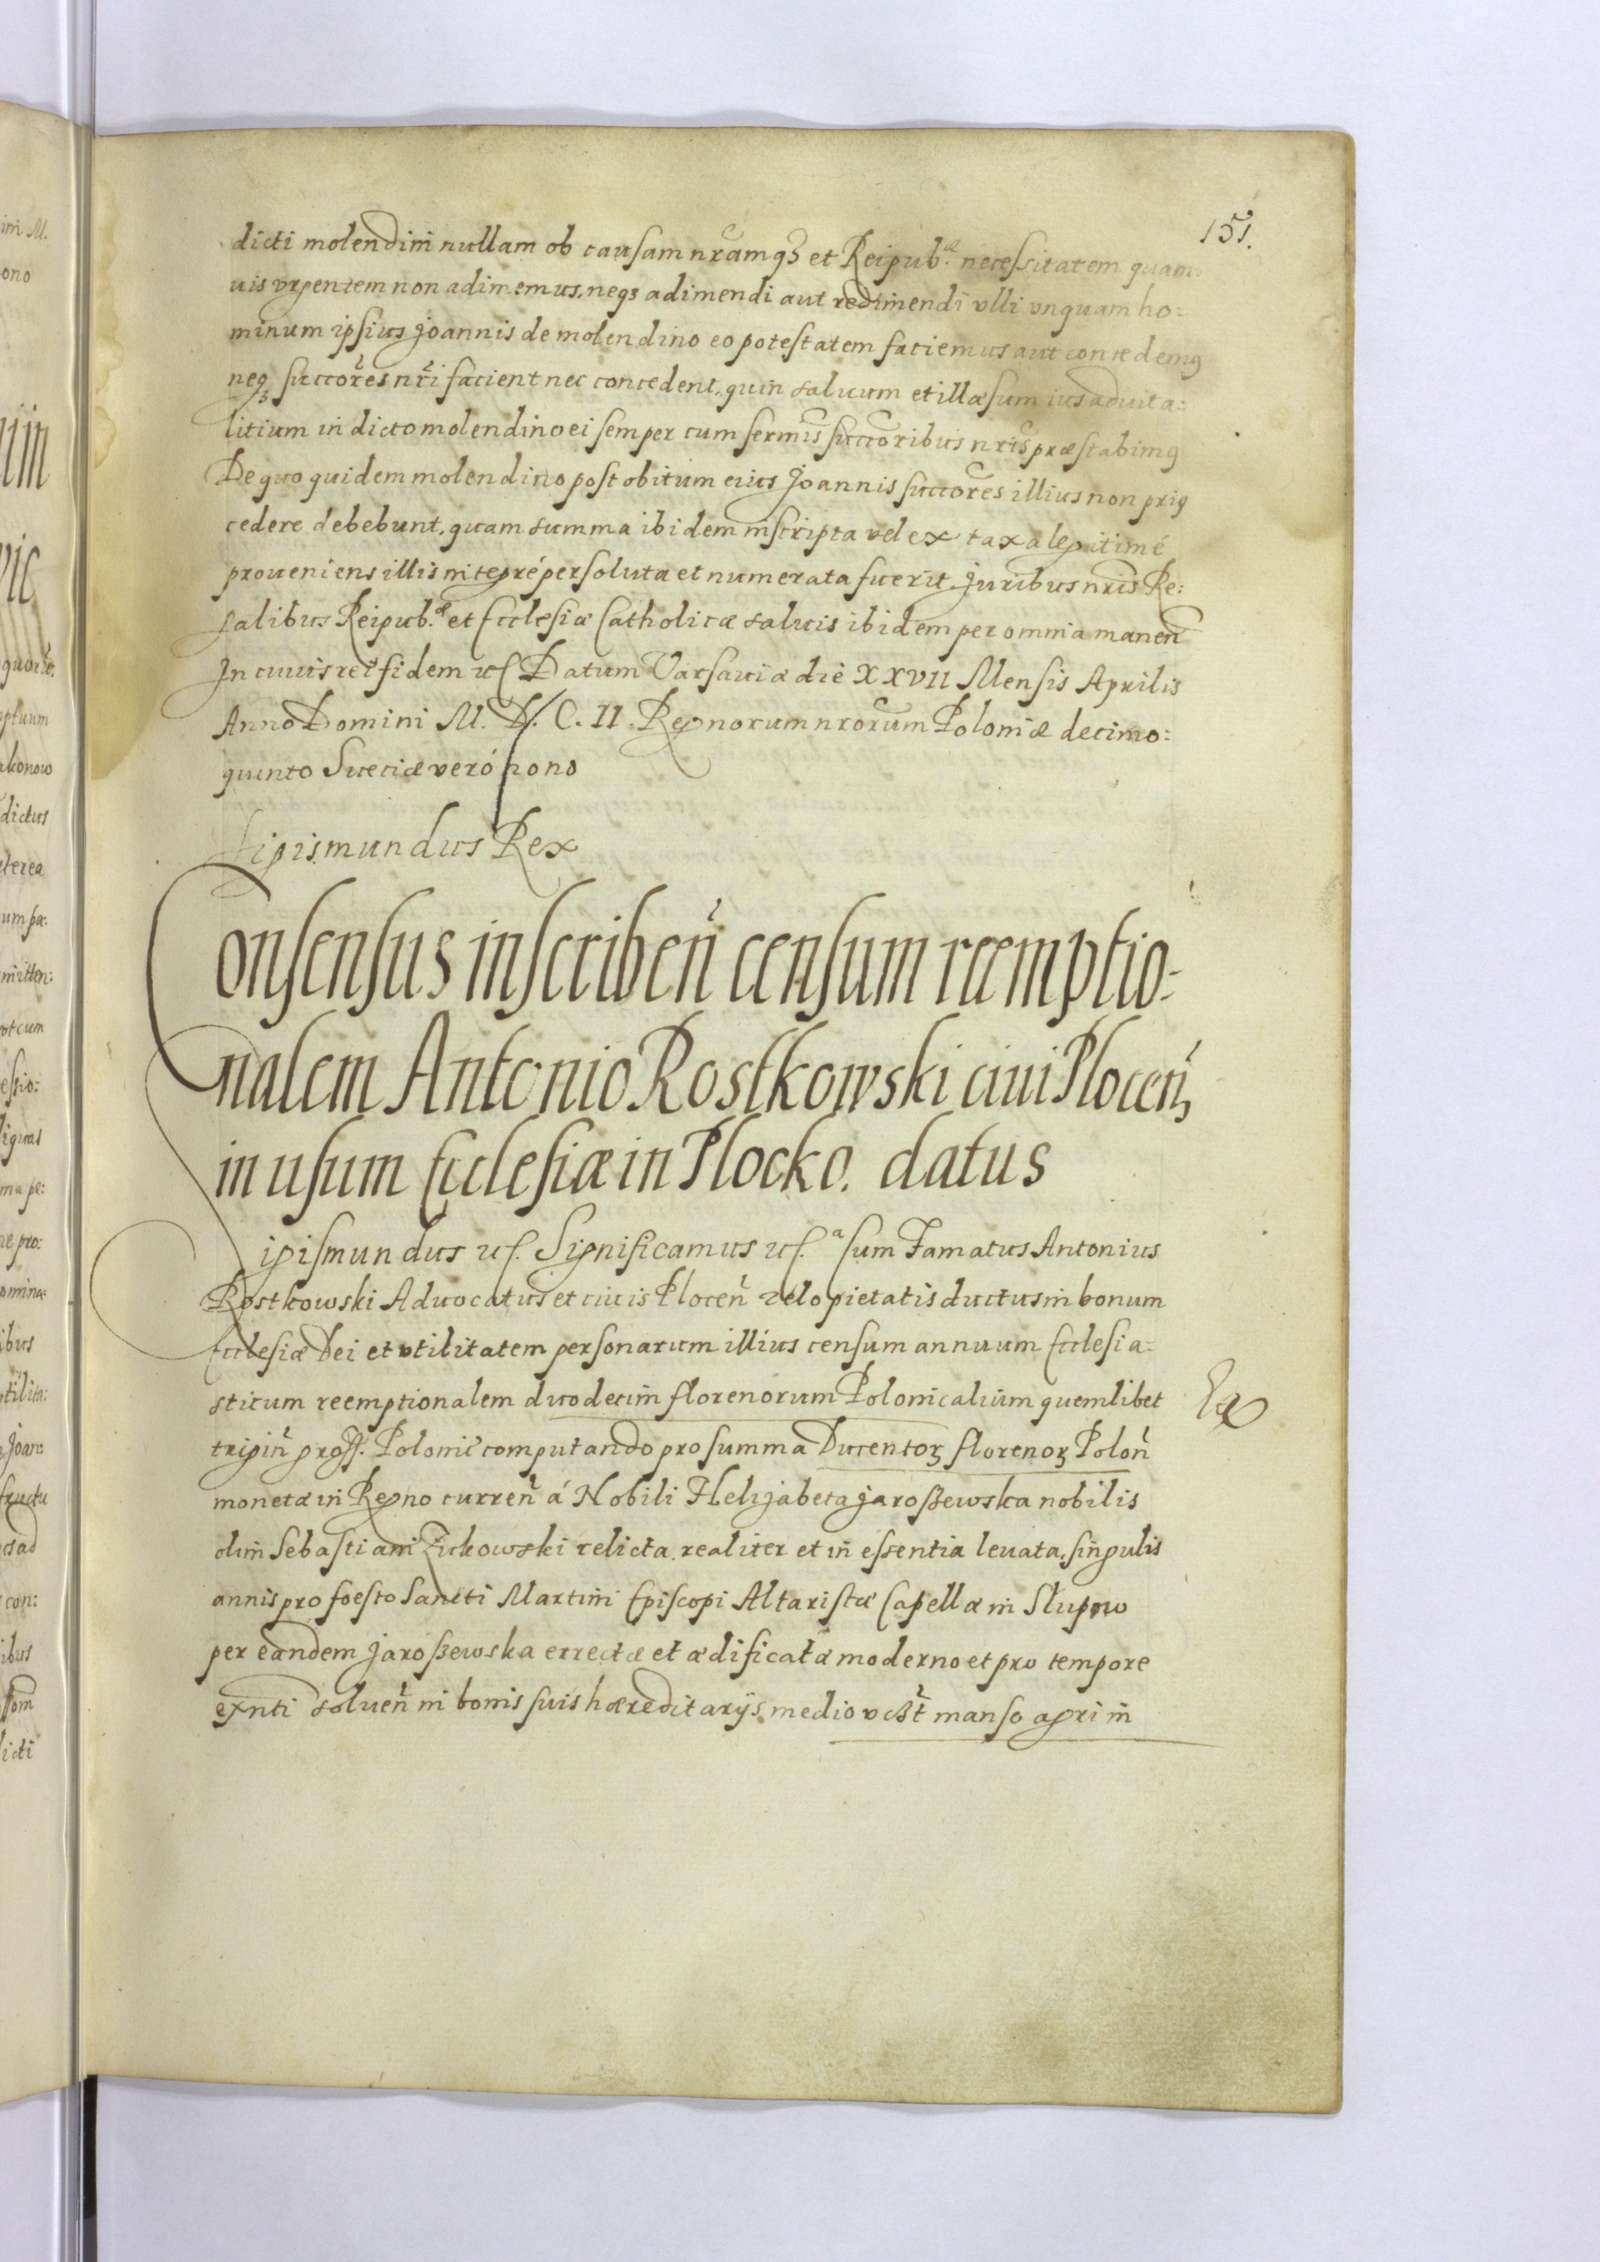 151.
dicti molendini nullam ob causam nr̃amq₃ et Reipub.æ necessitatem quam
uis vrgentem non adimemus, neq₃ adimendi aut redimendi vlli vnquam ho:
minum ipsius Joannis de molendino eo potestatem faciemus aut concedemꝰ
neq₃ succōres nr̃i facient nec concedent, quin saluum et illæsum ius aduita:
litium in dicto molendino ei semper cum sermis̃ succōribus nris̃ præstabimꝰ
De quo quidem molendino post obitum eius Joannis succōres illius non priꝰ
cedere debebunt, quam summa ibidem inscripta vel ex taxa legitimé
proueniens illis integré persoluta et numerata fuerit. Juribus nris̃ Re:
galibus Reipub.æ et Ecclesiæ Catholicæ saluis ibidem per omnia maneñ
In cuius rei fidem ꝛc̃ Datum Varsauiæ die XXVII Mensis Aprilis
Anno Domini M. D. C. II. Regnorum nrorum̃ Poloniæ decimo:
quinto Sueciæ veró nono
Sigismundus Rex
Consensus inscribeñ censum reemptio-
nalem Antonio Rostkowski ciui Ploceñ,
in usum Ecclesiæ in Plocko. datus
Sigismundus ꝛc̃. Significamus ꝛc̃. a sum Famatus Antonius
Rostkowski Aduocatus et ciuis Ploceñ zelo pietatis ductus in bonum
Ecclesiæ Dei et vtilitatem personarum illius censum annuum Ecclesia:
sticum reemptionalem duodecim florenorum Polonicalium quemlibet
trigiñ gross. Polonic̃ computando pro summa Ducentoꝝ florenoꝝ Poloñ
monetæ in Regno curreñ á Nobili Helizabeta Jaroßewska nobilis
olim Sebastiani Zukowski relicta, realiter et in essentia leuata, singulis
annis pro foesto Sancti Martini Episcopi Altaristæ Capellæ in Slupno
per eandem Jaroßewska errectæ et ædificatæ moderno et pro tempore
exñti solueñ in bonis suis hæreditarijs, medio vcst̃ manso agri in